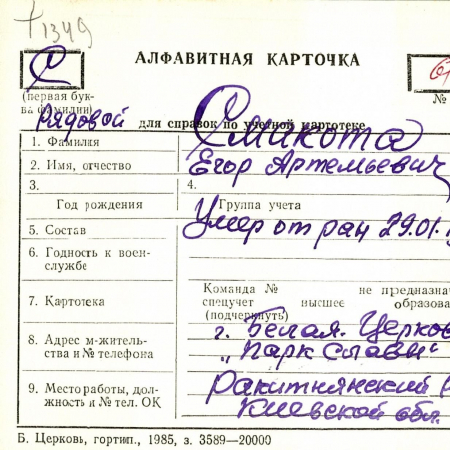 +1349
С
АЛФАВИТНАЯ КАРТОЧКА
(первая бук-
ва фамилии)
№
Рядовой для справок по учетной картотеке
1. Фамилия Смакота
2. Имя, отчество Егор Артемьевич
3. 4.
Год рождения Группа учета
5. Состав Умер от ран 29.01.
6. Годность к воен-
службе
Команда № не предназнач
7. Картотека спецучет высшее образова
(подчеркнуть)
8. Адрес м-житель- г. Белая-Церков
ства и № телефона "Парк Славы"
9. Место работы, дол- Ракитнянский
жность и № тел. ОК Киевской обл.
Б. Церковь, гортип., 1985, з. 3589—20000